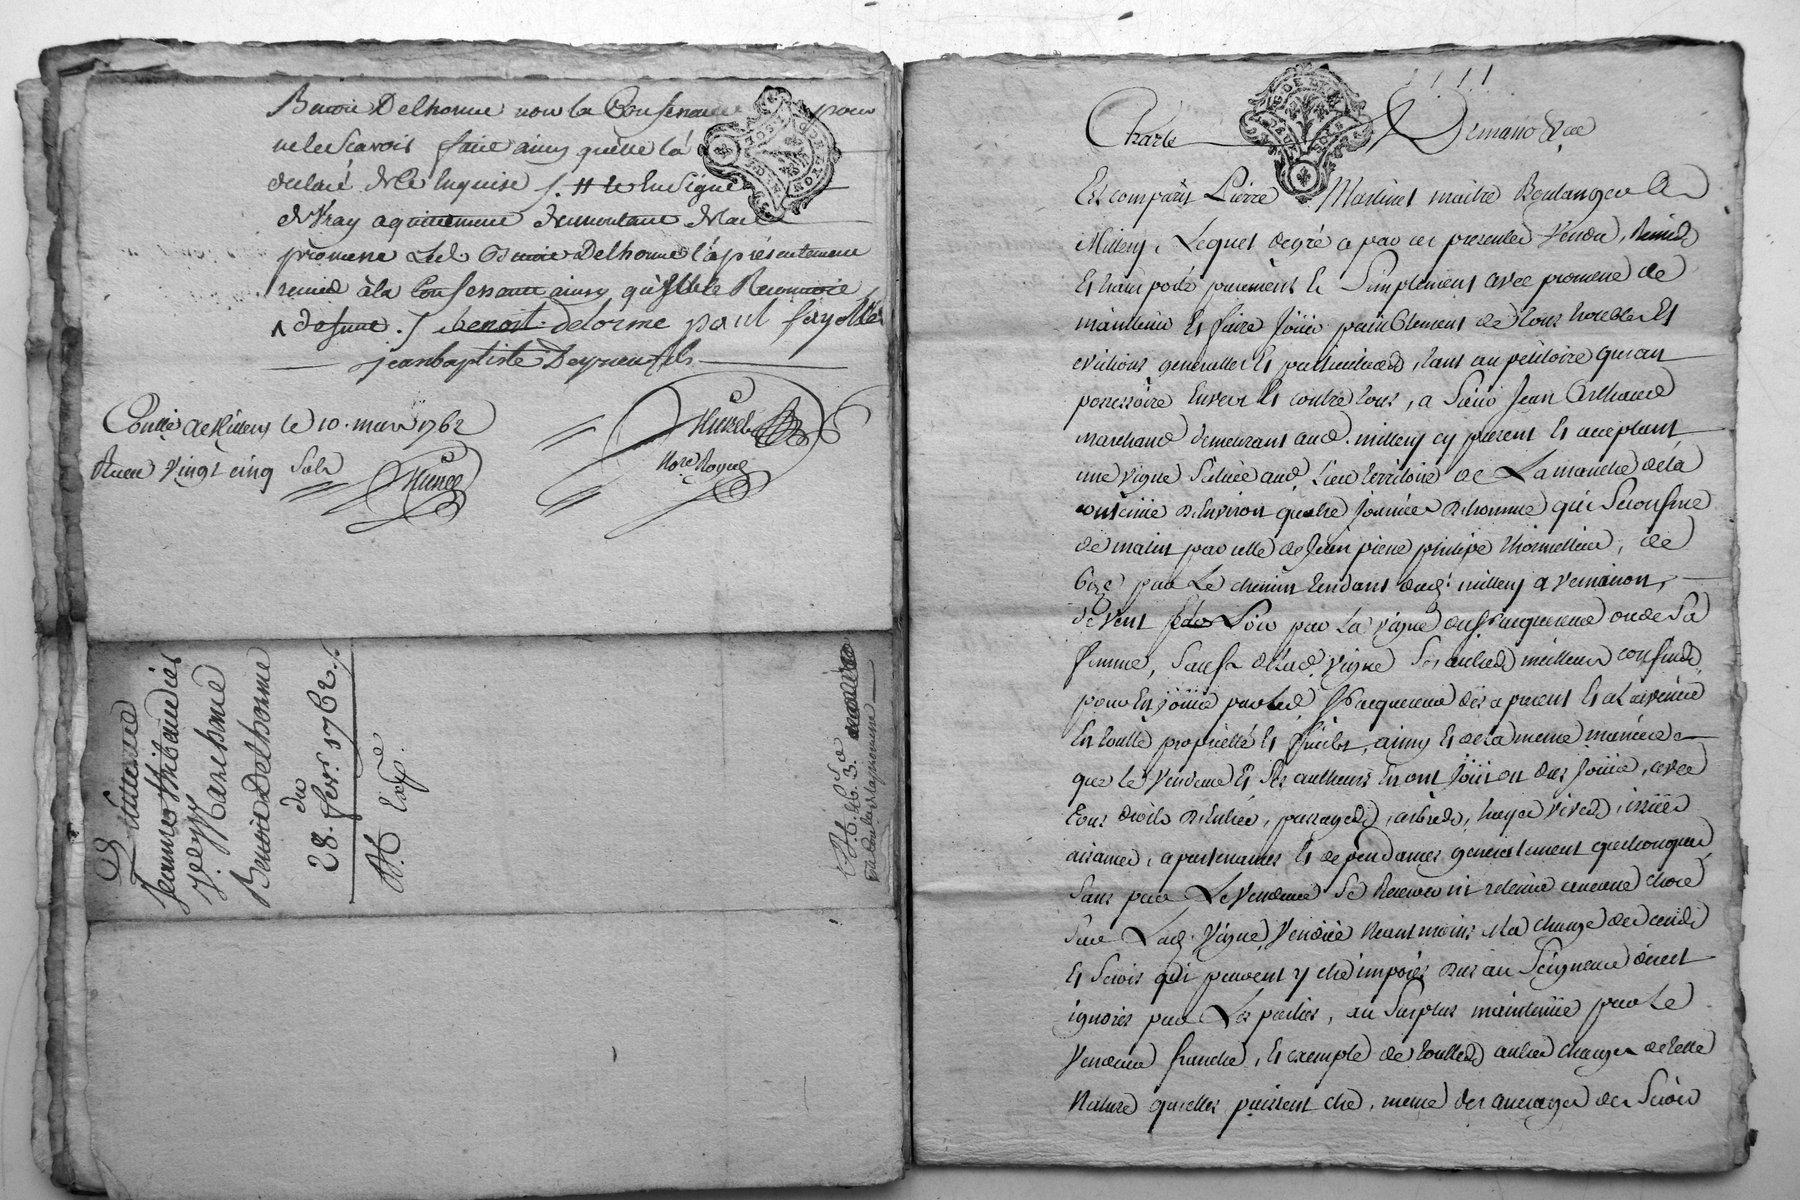 Benoit Delhorme non la Confessante pour
ne le Scavoir faire ainsy quelle la
declaré de ce Enquise /. # le Susigné
de Vray aquittement du montant de la
promesse Led. Benoit Delhorme l'a présentement
remise à la Confessante ainsy qu'Elle le Reconnoit
benoit delorme paul fayolle
jean baptiste Deyrieu fils
Conllé a Millery le 10. mars 1762
Receu Vingt cinq Sols
Nore Royal
Quittance
Jeanne thibaudier
Benoit Delhorme
du
28. fevr. 1762.
Est comparu Pierre Martinet maitre Boulanger a
Millery, Lequel de gré a par ces presentes Vendu, Remis
Et transporté purement Et Simplement avec promesse de
maintenir Et faire Joüir paisiblement de tous troubles Et
evictions generalles Et particulieres, tant au petitoire qu'au
possessoire Envers Et contre tous, a Sieur Jean
Marchand demeurant aud. millery cy present Et acceptant
une vigne Scituée aud. Lieu territoire de La manche de la
contenüe d'Environ quatre Journées d'homme qui Se confine
de matin par celle de Jean pierre philipe, de
bize par Le chemin tendant dud. millery a Vernaison,
de Vent Soir par La vigne du ou de Sa
femme, Sauf de lad. Vigne Ses autres meilleurs confins
pour En joüir par led. des a present Et a L'avenir
En toutte proprietté Et fruits, ainsy Et de la meme maniere
que le Vendeur Et Ses autheurs En ont Joüi ou dus Joüir, avec
tous droits d'Entrée, passages, arbres, hayes vives, issües
aisances, apartenances Et dependances generalement quelconques
Sans par Le Vendeur Se Reserver ni retenir aucune chose
Sur Lad. Vigne, Vendüe Neantmoins a la charge des cens
Et Servis qui peuvent y etre imposés dus au Seigneur direct
ignorés par Les parties, au Surplus maintenüe par Le
Vendeur franche, Et exempte de touttes autres charges de telle
Nature quelles puissent etre, meme des arrerages de Servis